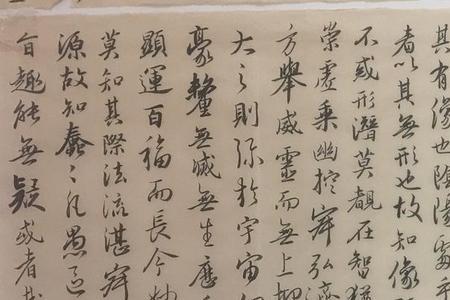 其有像也陰陽處乎
者以其無形也故知像
不或形潛莫覩在智猶
崇虛乘幽控寂弘濟
方舉威靈而無上抑
大之則彌於宇宙
豪釐無滅無生歷
顯運百福而長今妙
莫知其際法流湛寂
源故知蠢〻凡愚區
旨趣能無疑或者哉